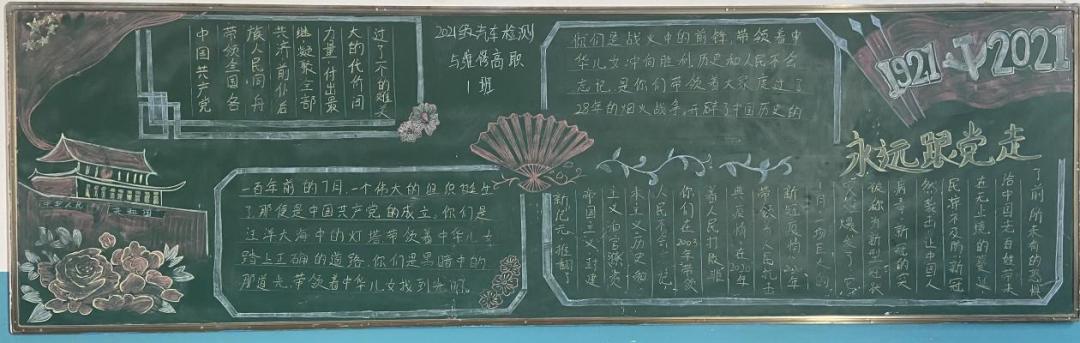 中国共产党
带领全国各
族人民同舟
共济前仆后
继凝聚全部
力量付出最
大的代价闯
过了一个的难关
2021级汽车检测
与维修高职
1班
你们是战火中的前锋,带领着中
华儿女冲向胜利历史和人民不会
忘记,是你们带领着大家度过了
28年的烟火战争,开辟了中国历史的
1921
2021
永远跟党走
中华人民
共和国
一百年前的7月,一个伟大的组织诞生
了,那便是中国共产党的成立。你们是
汪洋大海中的灯塔带领着中华儿女
踏上正确的道路,你们是黑暗中的
那道光,带领着中华儿女找到光明。
新纪元,推翻了
帝国主义封建
主义和官僚资
本主义历史和
人民不会忘记
你们在2003年带领
着人民打败非
典疫情,在2020年
带领
新冠疫情
被称为新型冠状
病毒,新冠的突
然袭击,让中国人
民猝不及防新冠
近无止境的蔓延
给中国老百姓带来
了前所未有的恐慌